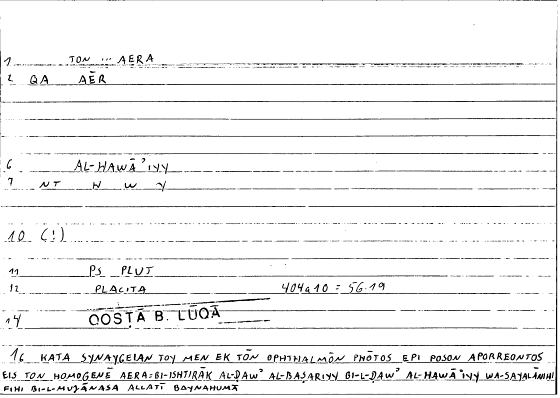 1 TON ... AERA
2 QA AĒR
6 AL-HAWĀʾIYY
7 NT H W Y
10 (!)
11 PS PLUT
12 PLACITA 404a10 = 56.19
14 QOSṬĀ B. LŪQĀ
16 KATA SYNAYGEIAN TOY MEN EK TŌN OPHTHALMŌN PHŌTOS EPI POSON APORREONTOS
EIS TON HOMOGENĒ AERA=BI-ISHTIRĀK AL-ḌAWʾ AL-BAṢARIYY BI-L-ḌAWʾ AL-HAWĀʾIYY WA-SAYALĀNIHI
FIHI BI-L-MUJĀNASA ALLATĪ BAYNAHUMĀ